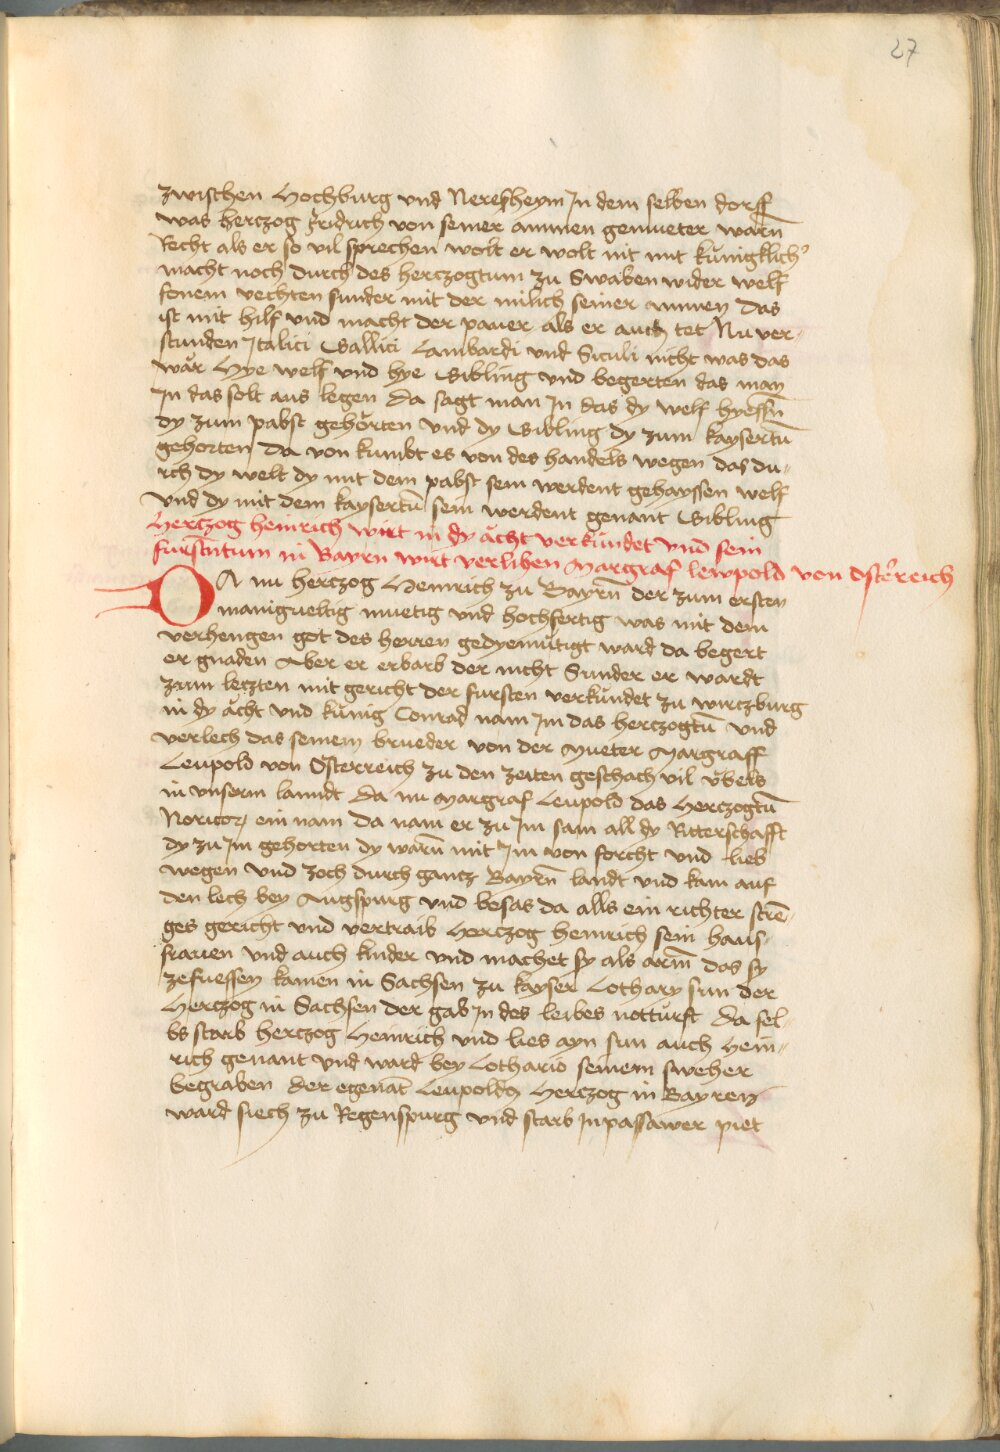 27
zwischen Hochburg vnd Neresheym In dem selben dorff
was hertzog fridrich von seiner ammen gemueter warn̄
Recht als er so vil sprechen wolt er wolt nit mit kůnigklich
macht noch durch des hertzogtum zu Swaben wider welf
sonem vechten sunder mit der milich seiner ammen Das
ist mit hilf vnd macht der paner als er auch tet Nu ver-
stunden Italici Gallici Lambardi vnd Siculi nicht was das
wǎr Hye welf vnd hye Gibling vnd begerten das man
In das solt aus legen Da sagt man In das dy welf hyessn̄
dy zum pabst gehörten vnd dy Gibling dy zum kaysertū
gehorten Da von kumbt es von des handels wegen das du-
rch dy welt dy mit dem pabst sein werdent gehayssen welf
vnd dy mit dem kaysertū sein werdent genant Gibling
Hertzog heinrich wirt in dy ǎcht verkůndet vnd sein
furstntum in Bayrn wirt verlihen Margraf lewpold von osterreich
DA nu hertzog Heinrich zu Bayrn̄ der zum ersten
manigueltig muetig vnd hochfertig was mit dem
verhengen got des herren gedyemůtigt ward da begert
er gnaden Aber er erbarb der nicht Sunder er wardt
zum letzten mit gericht der fursten verkůndet zu wirczburg
in dy ǎcht vnd kůnig Conrad nam Im das hertzogtū vnd
verlech das seinem brueder von der Mueter Margraff
Leupold von Österreich zu den zeiten geschach vil ůbels
in vnserm lanndt Da nu Margraf Leupold das Hertzogtū
Noricor ein nam da nam er zu Im sam all dy Ritterschafft
dy zu Im gehorten dy warn̄ mit Im von forcht vnd lieb
wegen vnd zoch durch gantz Bayrn̄ landt vnd kam auf
den lech bey Augspurg vnd besas da alls ein richter strē-
ges gericht vnd vertraib Hertzog heinrich sein haus-
frauen vnd auch kinder vnd machet sy als arm̄ das sy
zefuessen kamen in Sachsen zu kayser Lothary sun der
Hertzog in Sachsen der gab In des leibes notturft Da sel-
bs starb hertzog Heinrich vnd lies ayn sun auch Hein-
rich genant vnd ward bey Lothario seinem sweher
begraben der egenāt Leupoldg Hertzog in Bayren
ward siech zu Regenspurg vnd starb In passawer piet